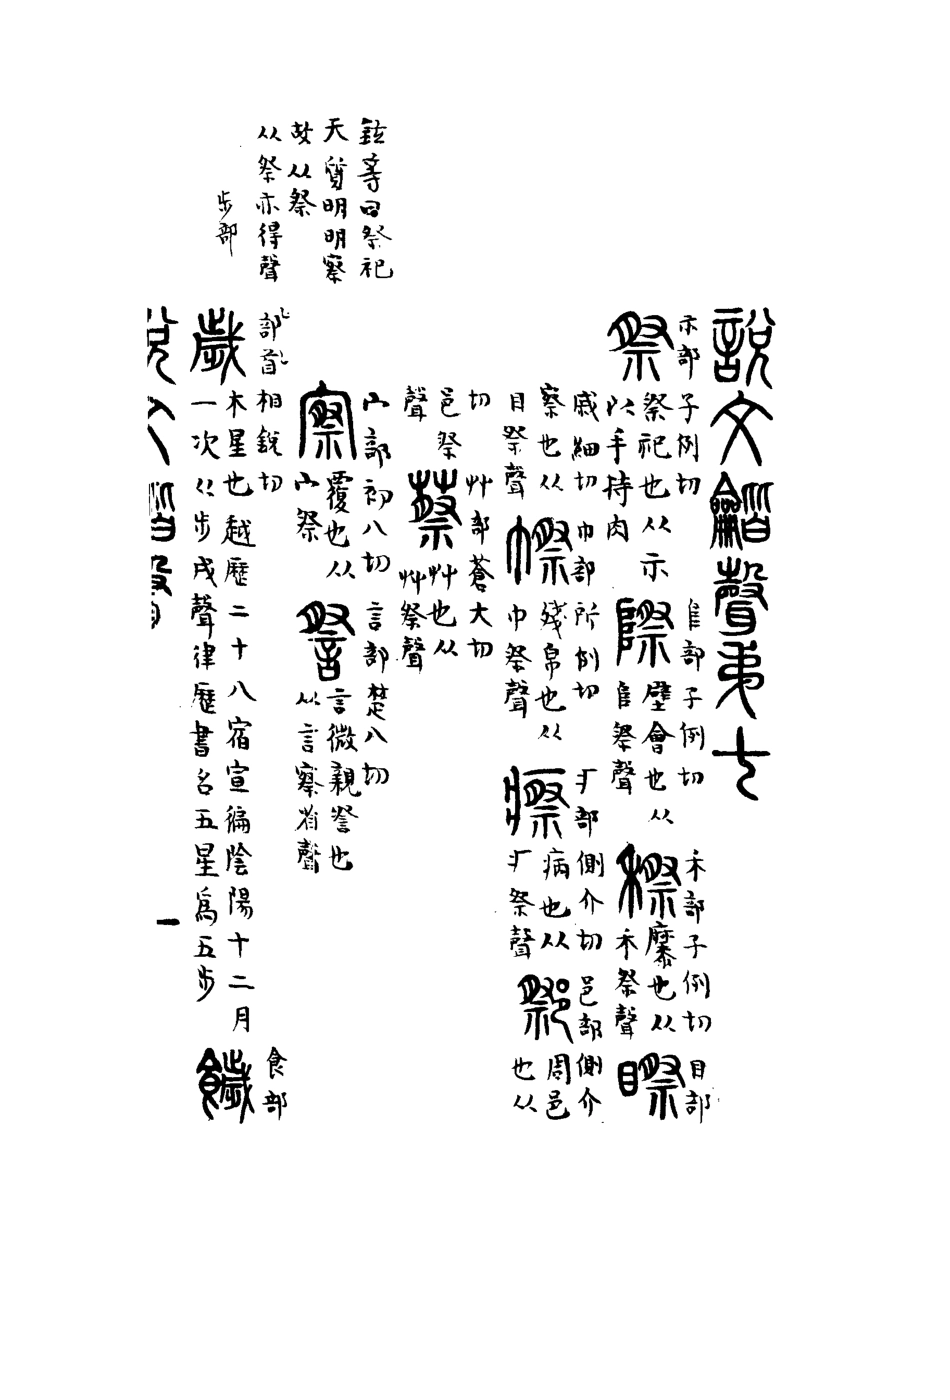 鉉等曰祭祀
天質明明察
故从祭
从祭亦得聲
步部
說文龤聲弟七
祭 示部子例切祭祀也从示以手持肉
際 𨸏部子例切壁會也从𨸏祭聲
穄 禾部子例切穈也从禾祭聲
䁟 目部戚細切察也从目祭聲
㡜 巾部所例切殘帛也从巾祭聲
瘵 疒部側介切病也从疒祭聲
䣝 邑部側介切周邑也从邑祭聲
蔡 艸部蒼大切艸也从艸祭聲
察 宀部初八切覆也从宀祭
詧 言部楚八切言微親詧也从言察省聲
歲 部首相銳切木星也越歷二十八宿宣徧陰陽十二月一次从步戌聲律歷書名五星爲五步
饖 食部
說文龤聲
一